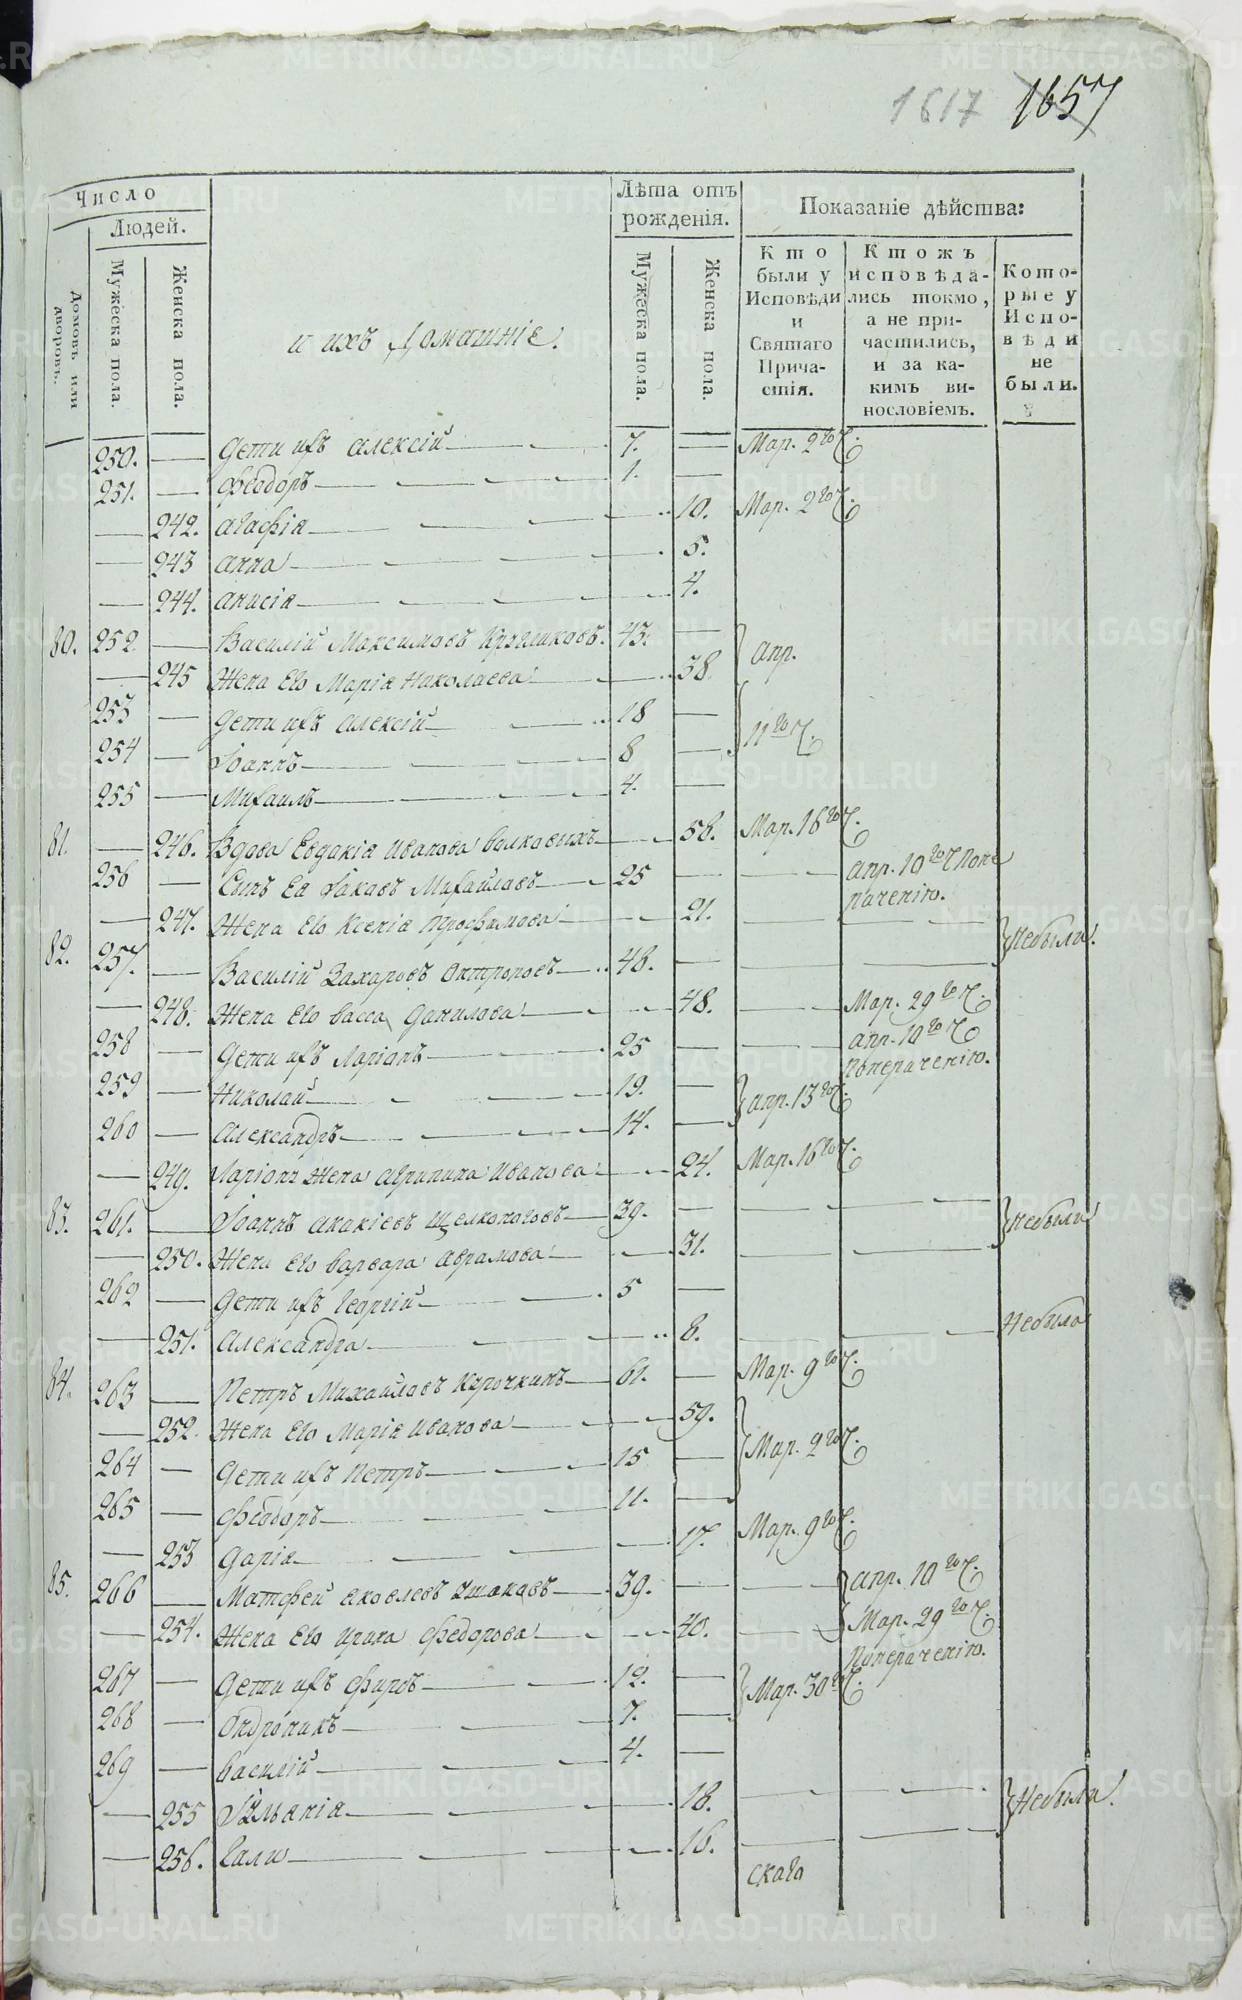 1617 1657
Число
Людей.
Домовъ или дворовъ.
Мужеска пола.
Женска пола.
и ихъ Домашніе.
Лѣта отъ рожденія.
Мужеска пола.
Женска пола.
Показаніе дѣйства:
Кто были у Исповѣди и Святаго Причастія.
Ктожъ исповѣдались токмо, а не причастились, и за какимъ винословіемъ.
Которые у Исповѣди не были.
250. — Дети ихъ Алексій — 7. — Мар. 2го Ч.
251. — Феодоръ — 1. —
— 242. Агафія — 10. Мар. 2го Ч.
— 243 Анна — 5.
— 244. Анисія — 4.
80. 252 — Василій Максимовъ Кругликовъ. 43. — Апр.
— 245 Жена Его Марія Николаева — 38
253 — Дети ихъ Алексій — 18 — 11го Ч.
254 — Іоаннъ — 8 —
255 — Михаилъ — 4. —
81. — 246. Вдова Евдакія Иванова Волковыхъ — 56. Мар. 16го Ч.
256 — Сынъ Ея Іаковъ Михайловъ — 25 — — Апр. 10го Ч
— 247. Жена Его Ксенія — 21. — — Небыли.
82. 257. — Василій Захаровъ — 46. — — —
— 248. Жена Его Васса Данилова — 48. — Мар. 29го Ч.
258 — Дети ихъ Ларіонъ — 25 — — Апр. 10го Ч
259 — Николай — 19. — Апр. 13го Ч.
260 — Александръ — 14. —
— 249. Ларіона Жена Агрипина Иванова — 24. Мар. 16го Ч.
83. 261. — Іоаннъ Акакіевъ Щелконоговъ — 39. — — — Небыли
— 250. Жена Его Варвара Аврамова — 31. — —
262 — Дети ихъ Георгій — 5 —
— 251. Александра — 8. — — Небыла
84. 263 — Петръ Михайловъ Курочкинъ — 61. — Мар. 9го Ч.
— 252. Жена Его Марія Иванова — 59. Мар. 2го Ч.
264 — Дети ихъ Петръ — 15 —
265 — Феодоръ — 11. —
— 253 Дарія — 17. Мар. 9го Ч.
85. 266 — Матфей Яковлевъ Ушаковъ — 39. — — Апр. 10го Ч.
— 254. Жена Его Ирина Федорова — 40. — Мар. 29го Ч.
267 — Дети ихъ Фирсъ — 12. — Мар. 30го Ч.
268 — Андроникъ — 7. —
269 — Василій — 4. —
— 255 Іуліанія — 18. — — Небыли.
— 256. — 16. — —
скаго